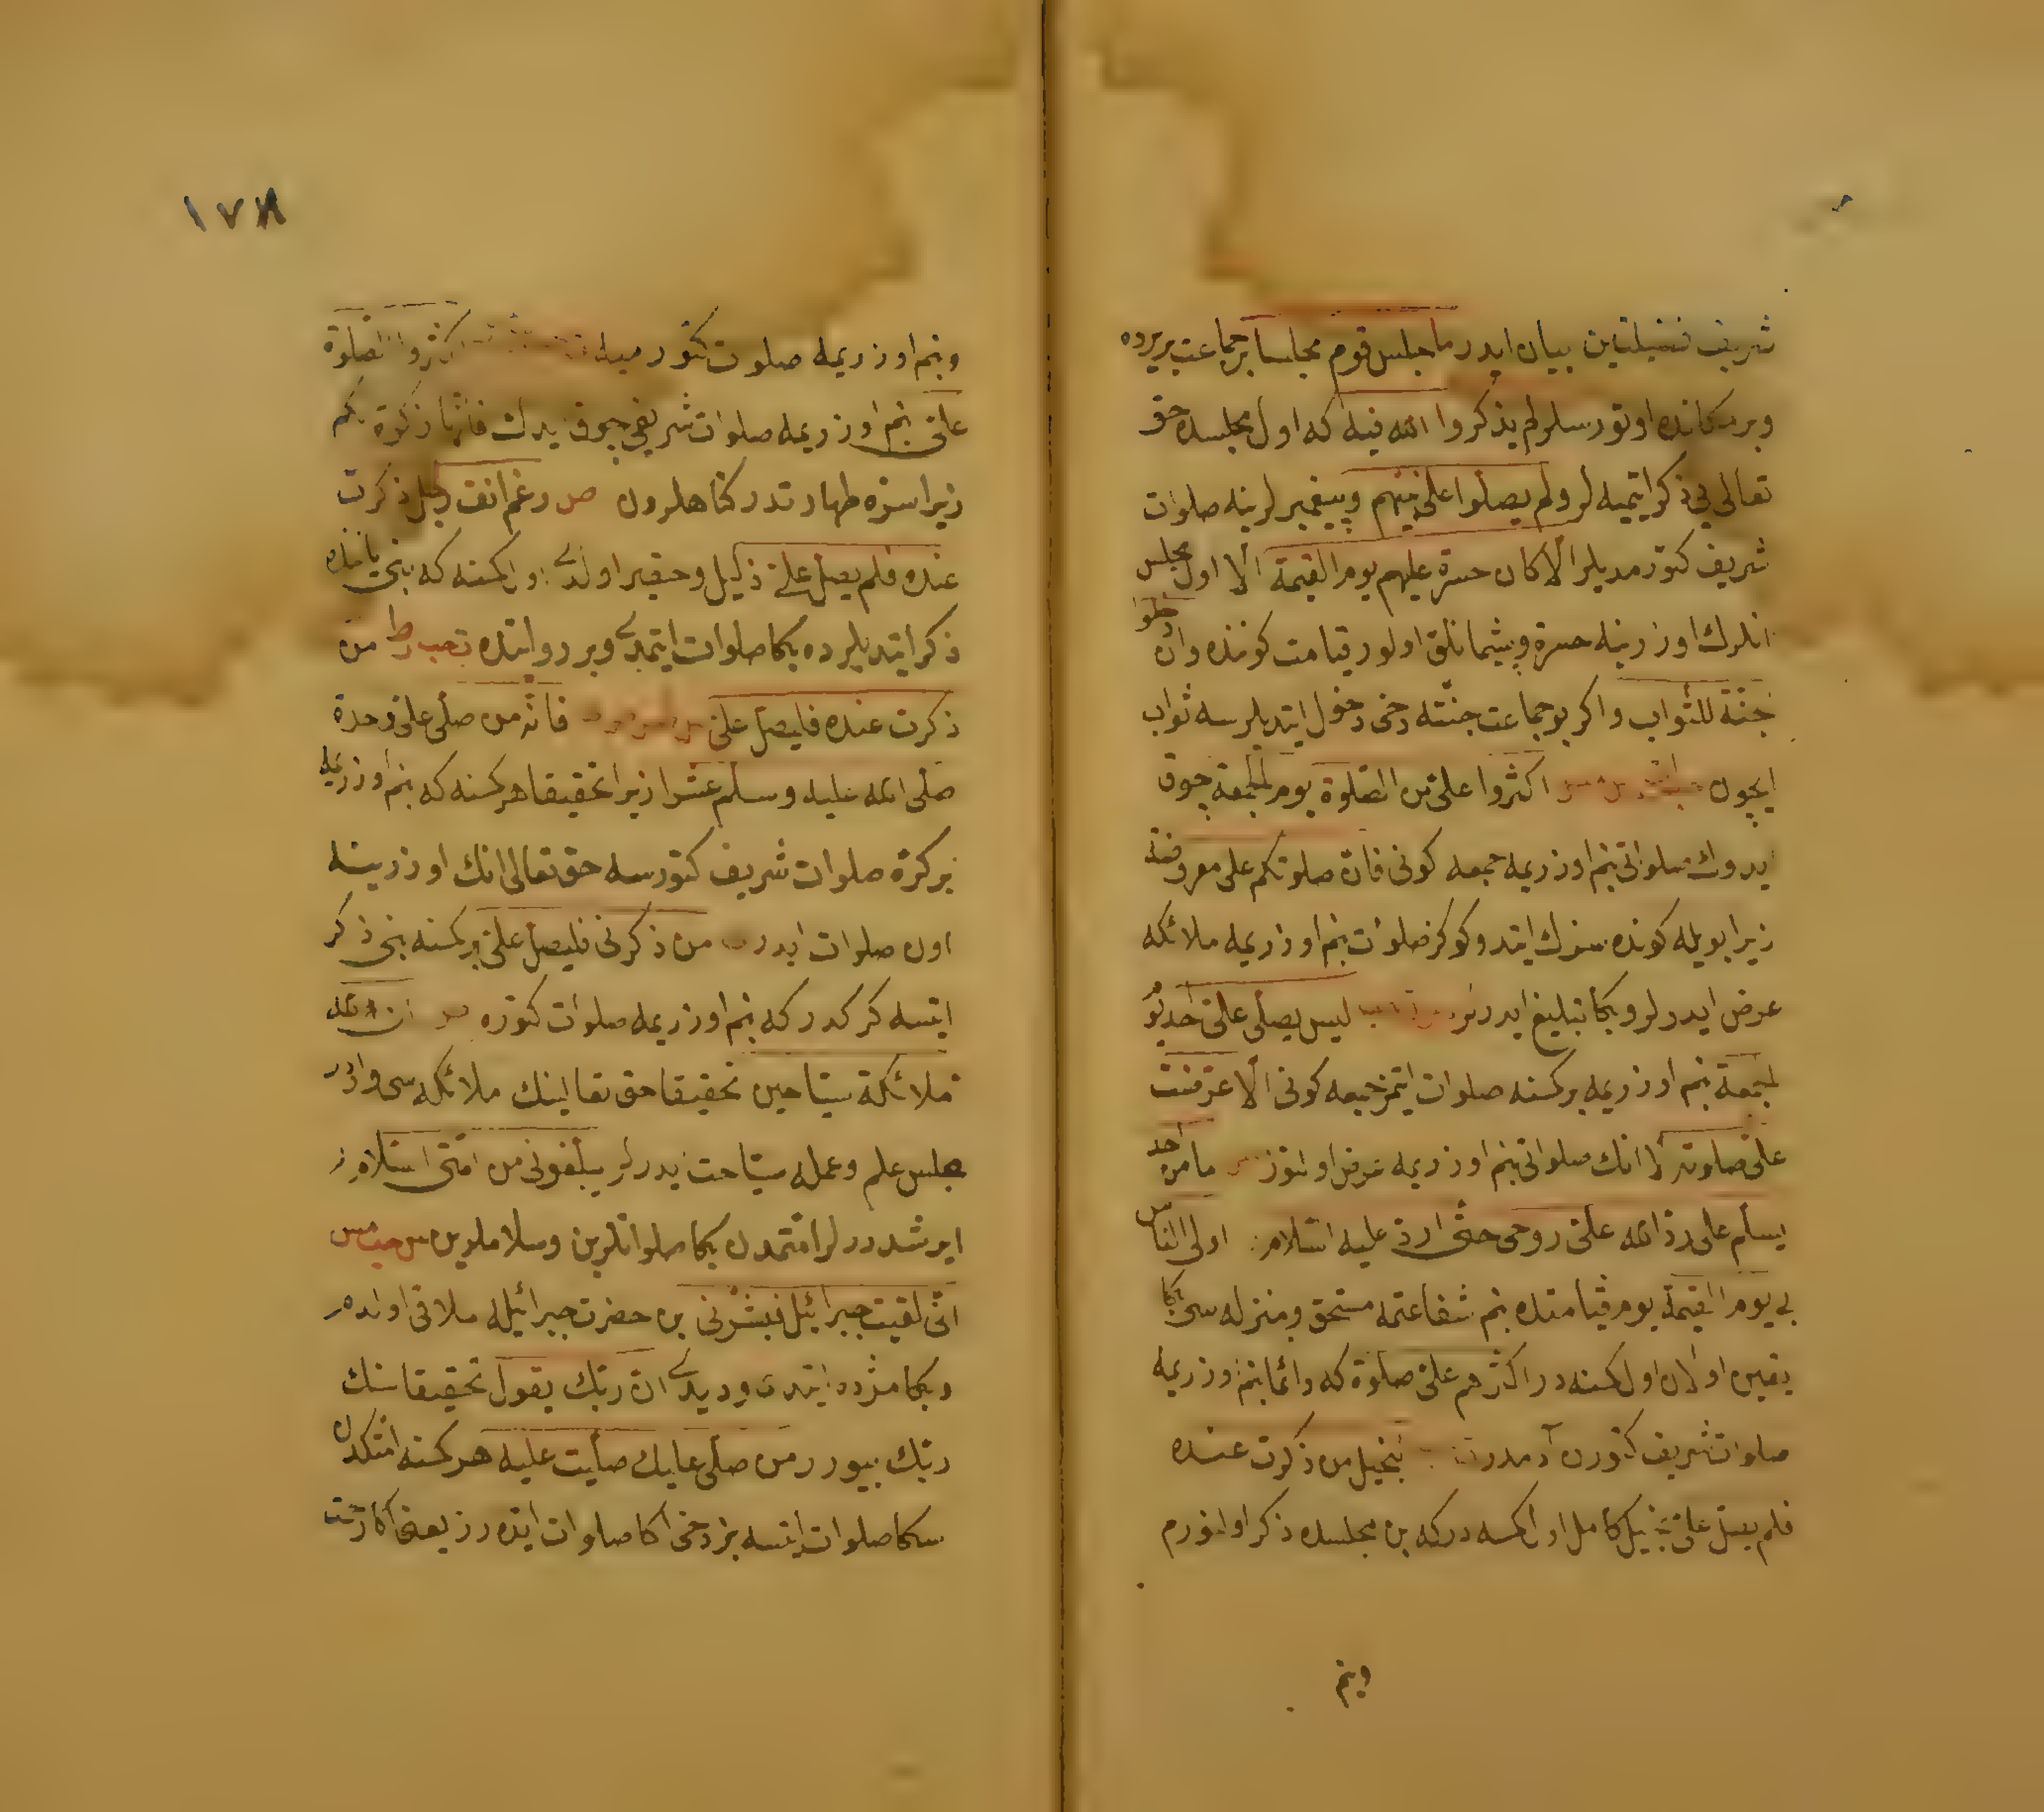 شريف فضيلتلين بيان ايدر ما جلس قوم مجلسا بر جماعت بر يرده
وبر مكانده اوتورسلر لم يذكروا الله فيه كه اول مجلسده حق
تعالى يي ذكر ايتميه لر ولم يصلوا على نبيهم وپيغمبرلرينه صلوات
شريف كتورمديلر الا كان حسرة عليهم يوم القيمة الا اول مجلس
انلرك اوزرينه حسرة وپشمانلق اولور قيامت كوننده وان دخلوا
جنة للثواب واكر بو جماعت جنته دخى دخول ايتديلرسه ثواب
ايچون اكثروا على من الصلوة يوم الجمعة چوق
ايدوك صلواتى بنم اوزريمه جمعه كونى فان صلوتكم على معروضة
زيرا بويله كونده سزك ايتدوكوكز صلوات بنم اوزريمه ملائكه
عرض ايدرلر وبكا تبليغ ايدرلر ليس يصلى على احد يوم
الجمعة بنم اوزريمه بر كمسنه صلوات ايتمز جمعه كونى الا عرضت
على صلوته الا انك صلواتى بنم اوزريمه عرض اولنور ما من احد
يسلم على رد الله على روحى حتى ارد عليه السلام اولى الناس
بى يوم القيمة يوم قيامتده بنم شفاعتمه مستحق ومنزله سى بكا
يقين اولان اول كمسنه در اكثرهم على صلوة كه دائما بنم اوزريمه
صلوات شريف كتورن آدمدر بخيل من ذكرت عنده
فلم يصل على بخيل كامل اول كمسه دركه بن مجلسده ذكر اولنورم
وبنم
١٧٨
وبنم اوزريمه صلوات كتورميه اكثروا الصلوة
على بنم اوزريمه صلوات شريفى چوق ايدك فانها زكوة لكم
زيرا سزه طهارتدر كناهلردن ص رغم انف رجل ذكرت
عنده فلم يصل على ذليل وحقير اولدى اول كمسنه كه بنى ياننده
ذكر ايتديلر ده بكا صلوات ايتمدى وبر روايتده من
ذكرت عنده فليصل على فانه من صلى على وحدة
صلى الله عليه وسلم عشرا زيرا تحقيقا هر كمسنه كه بنم اوزريمه
بر كره صلوات شريف كتورسه حق تعالى انك اوزرينه
اون صلوات ايدر من ذكرنى فليصل على بر كمسنه بنى ذكر
ايتسه كركدر كه بنم اوزريمه صلوات كتوره ص ان لله
ملائكة سياحين تحقيقا حق تعالينك ملائكه سى واردر
مجلس علم وعمله سياحت ايدرلر يبلغونى من امتى السلام
ايرشدررلر امتمدن بكا صلواتلرين وسلاملرين
انى لقيت جبرائيل فبشرنى بن حضرت جبرائيله ملاقى اولدم
وبكا مژده ايتدى وديدى ان ربك يقول تحقيقا سنك
ربك بيورر من صلى عليك صليت عليه هر كمسنه امتكدن
سكا صلوات ايتسه بز دخى اكا صلوات ايدرز يعنى اكا رحمت